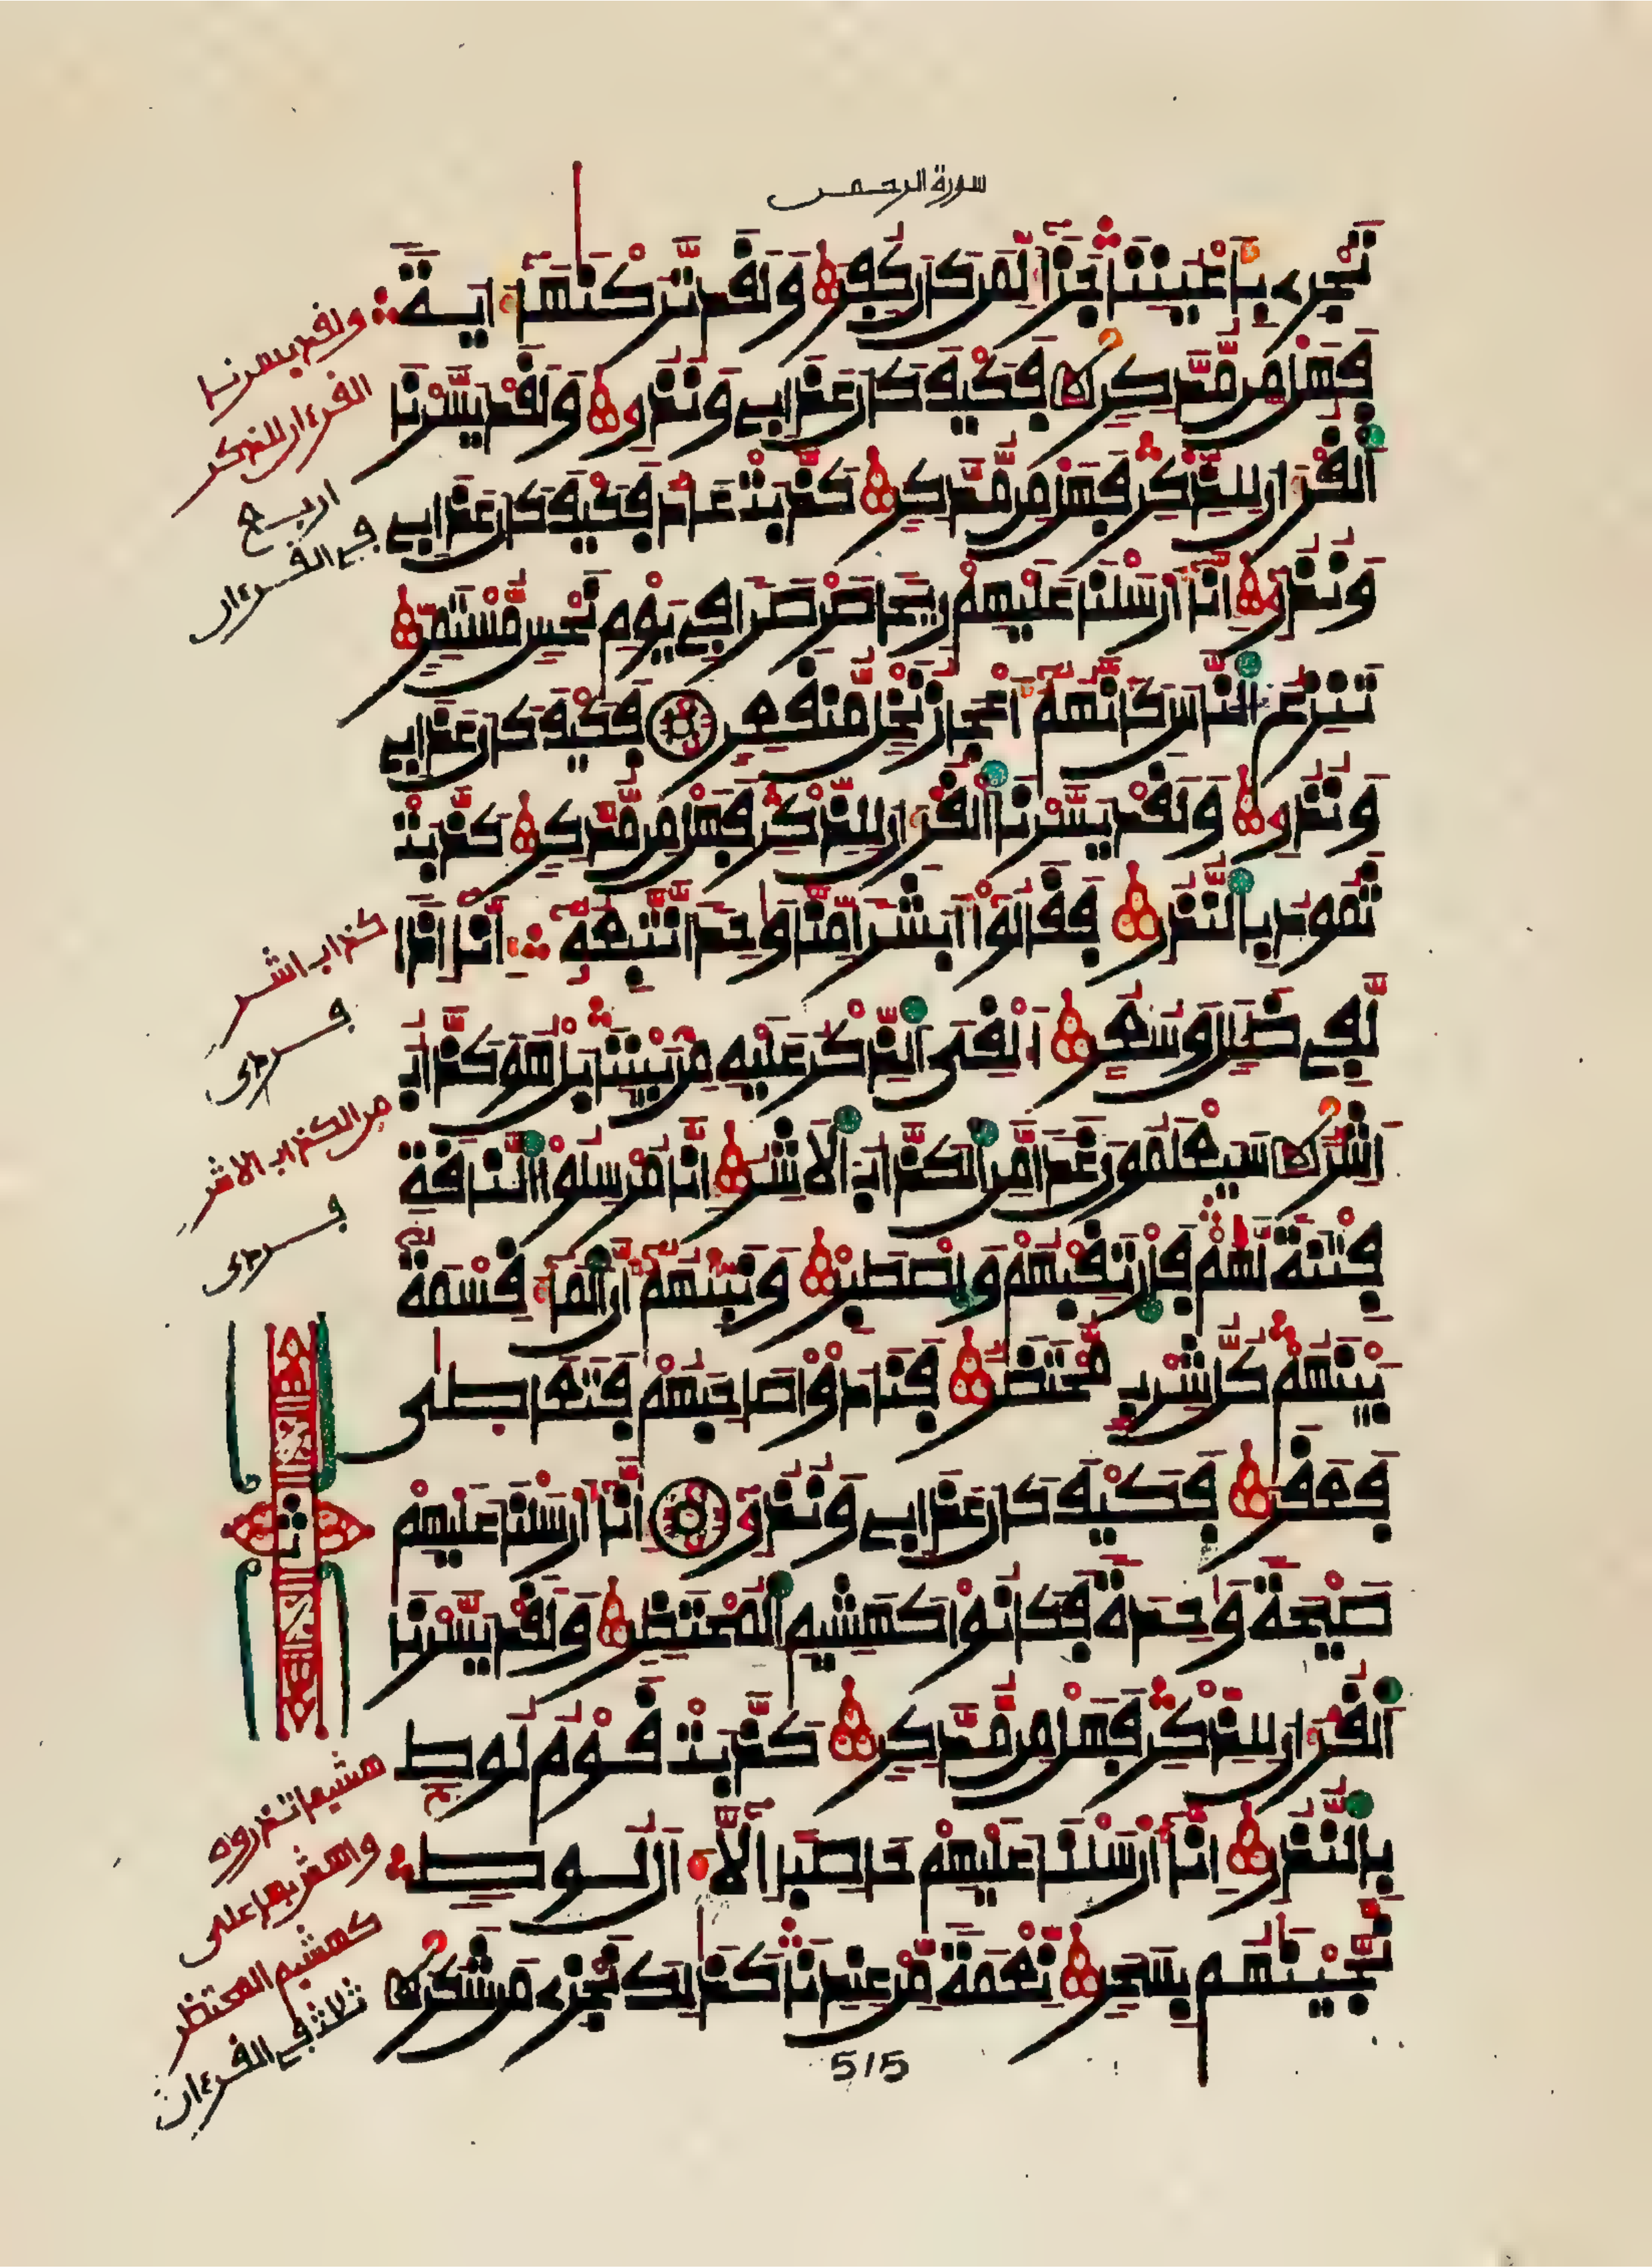 سورة الرحمن
تَجْرِے بِأَعْيُنِنَا جَزَآءً لِّمَن كَانَ كُفِرَ وَلَقَد تَّرَكْنَٰهَآ ءَايَةً
فَهَلْ مِن مُّدَّكِرٍ فَكَيْفَ كَانَ عَذَابِے وَنُذُرِۦ وَلَقَدْ يَسَّرْنَا
اَلْقُرْءَانَ لِلذِّكْرِ فَهَلْ مِن مُّدَّكِرٍ كَذَّبَتْ عَادٌ فَكَيْفَ كَانَ عَذَابِے
وَنُذُرِۦ إِنَّآ أَرْسَلْنَا عَلَيْهِمْ رِيحاً صَرْصَراً فِے يَوْمِ نَحْسٍ مُّسْتَمِرٍّ
تَنزِعُ اُلنَّاسَ كَأَنَّهُمْ أَعْجَازُ نَخْلٍ مُّنقَعِرٍ فَكَيْفَ كَانَ عَذَابِے
وَنُذُرِۦ وَلَقَدْ يَسَّرْنَا اَلْقُرْءَانَ لِلذِّكْرِ فَهَلْ مِن مُّدَّكِرٍ كَذَّبَتْ
ثَمُودُ بِالنُّذُرِ فَقَالُوٓاْ أَبَشَراً مِّنَّا وَٰحِداً نَّتَّبِعُهُۥٓ إِنَّآ إِذاً
لَّفِے ضَلَٰلٍ وَسُعُرٍ أَ۟لْقِىَ اَلذِّكْرُ عَلَيْهِ مِنۢ بَيْنِنَا بَلْ هُوَ كَذَّابٌ
أَشِرٌ سَيَعْلَمُونَ غَداً مَّنِ اِلْكَذَّابُ اُلْأَشِرُ إِنَّا مُرْسِلُواْ اُلنَّاقَةِ
فِتْنَةً لَّهُمْ فَارْتَقِبْهُمْ وَاصْطَبِرْ وَنَبِّئْهُمْ أَنَّ اَلْمَآءَ قِسْمَةٌ
بَيْنَهُمْ كُلُّ شِرْبٍ مُّحْتَضَرٌ فَنَادَوْاْ صَاحِبَهُمْ فَتَعَاطَىٰ
فَعَقَرَ فَكَيْفَ كَانَ عَذَابِے وَنُذُرِۦ إِنَّآ أَرْسَلْنَا عَلَيْهِمْ
صَيْحَةً وَٰحِدَةً فَكَانُواْ كَهَشِيمِ اِلْمُحْتَظِرِ وَلَقَدْ يَسَّرْنَا
اَلْقُرْءَانَ لِلذِّكْرِ فَهَلْ مِن مُّدَّكِرٍ كَذَّبَتْ قَوْمُ لُوطٍۢ
بِالنُّذُرِ إِنَّآ أَرْسَلْنَا عَلَيْهِمْ حَاصِباً إِلَّآ ءَالَ لُوطٍ
نَّجَّيْنَٰهُم بِسَحَرٍ نِّعْمَةً مِّنْ عِندِنَا كَذَٰلِكَ نَجْزِے مَن شَكَرَ
515
ولقد يسرنا
القرءان للذكر
اربع
في القرءان
كذاب اشر
فردى
من الكذاب الاشر
فردى
ثمن
هشيما تذروه
واهش بها على
كهشيم المحتظر
ثلاث في القرءان